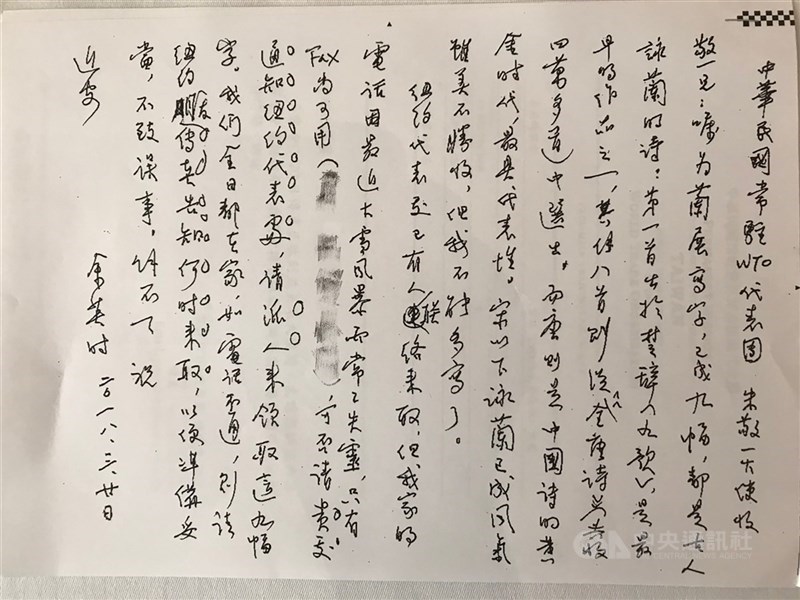 中華民國常駐WTO代表團 朱敬一大使收
敬一兄：囑為蘭展寫字，已成九幅，都是古人
詠蘭的詩。第一首出於楚辭〈九歌〉，是最
早的作品之一，其餘八首則從《全唐詩》（共收
四萬多首）中選出。而唐則是中國詩的黃
金時代，最具代表性。宋以下詠蘭已成風氣
雖美不勝收，但我不能多寫了。
紐約代表處已有人聯絡來取，但我家的
電話因最近大雪風暴而常常失靈，只有
Fax尚可用（ ），可否請貴處
通知紐約代表處，請派人來領取這九幅
字。我們全日都在家，如電話不通，則請
紐約友人傳真告知何時來取，以便準備妥
當，不致誤事，餘不一一 祝
近安
余英時 二〇一八、三、廿日
中央通訊社
CENTRAL NEWS AGENCY